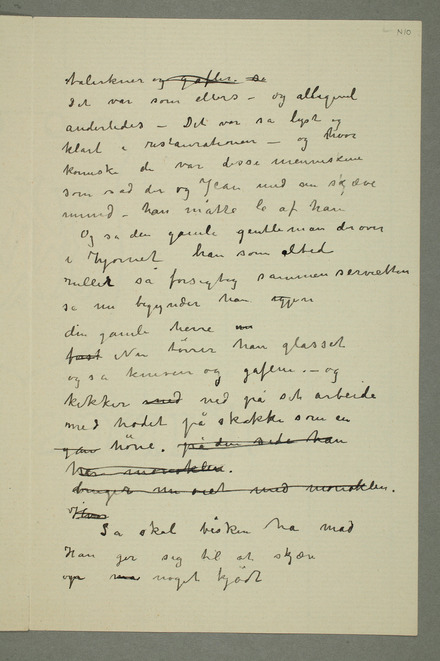 N10
talerkner og gafler. så
Det var som ellers – og alligevel
anderledes – Det var så lyst og
klart i restaurationen – og hvor
komiske de var disse menneskene
som sad der og Jean med sin skjæve
mund – han måtte le af ham
Og så den gamle gentleman derover
i hjørnet han som altid
rullet så forsigtig sammen servietten
så nu begynder han igjen
den gamle herre
fast Nu tørrer han glasset
og så kniven og gaflene. – og
kikker med ned på sit arbeide
med hodet på skakke som en
høne. på den side han
har monoklen.
bruger nu øiet med monoklen.
Så skal bisken ha mad
Han gør sig til at skjæ
op noget kjødt